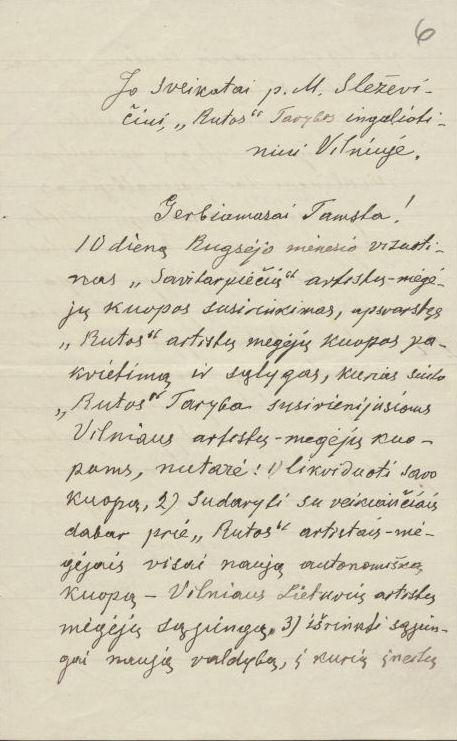 6
Jo Sveikatai p. M. Sleževi-
čiui, „Rutos" Tarybos ingalioti-
niui Vilniuje.
Gerbiamasai Tamsta!
10 dieną Rugsėjo mėnesio visuoti-
nas „Savitarpiečių" artistų-mėgė-
jų kuopos susirinkimas, apsvarstęs
„Rutos" artistų megėjų kuopos pa-
kvietimą ir sąlygas, kurias siulo
„Rutos" Taryba susivienijusioms
Vilniaus artistų-megėjų kuo-
poms, nutarė: 1) likviduoti savo
kuopą, 2) Sudaryti su veikiančiais
dabar prie „Rutos" artistais-mė-
gėjais visai naują autonomišką
kuopą – Vilniaus Lietuvių artistų
mėgėjų sąjungą, 3) išrinkti sąjun-
gai naują valdybą, į kurią įneitų